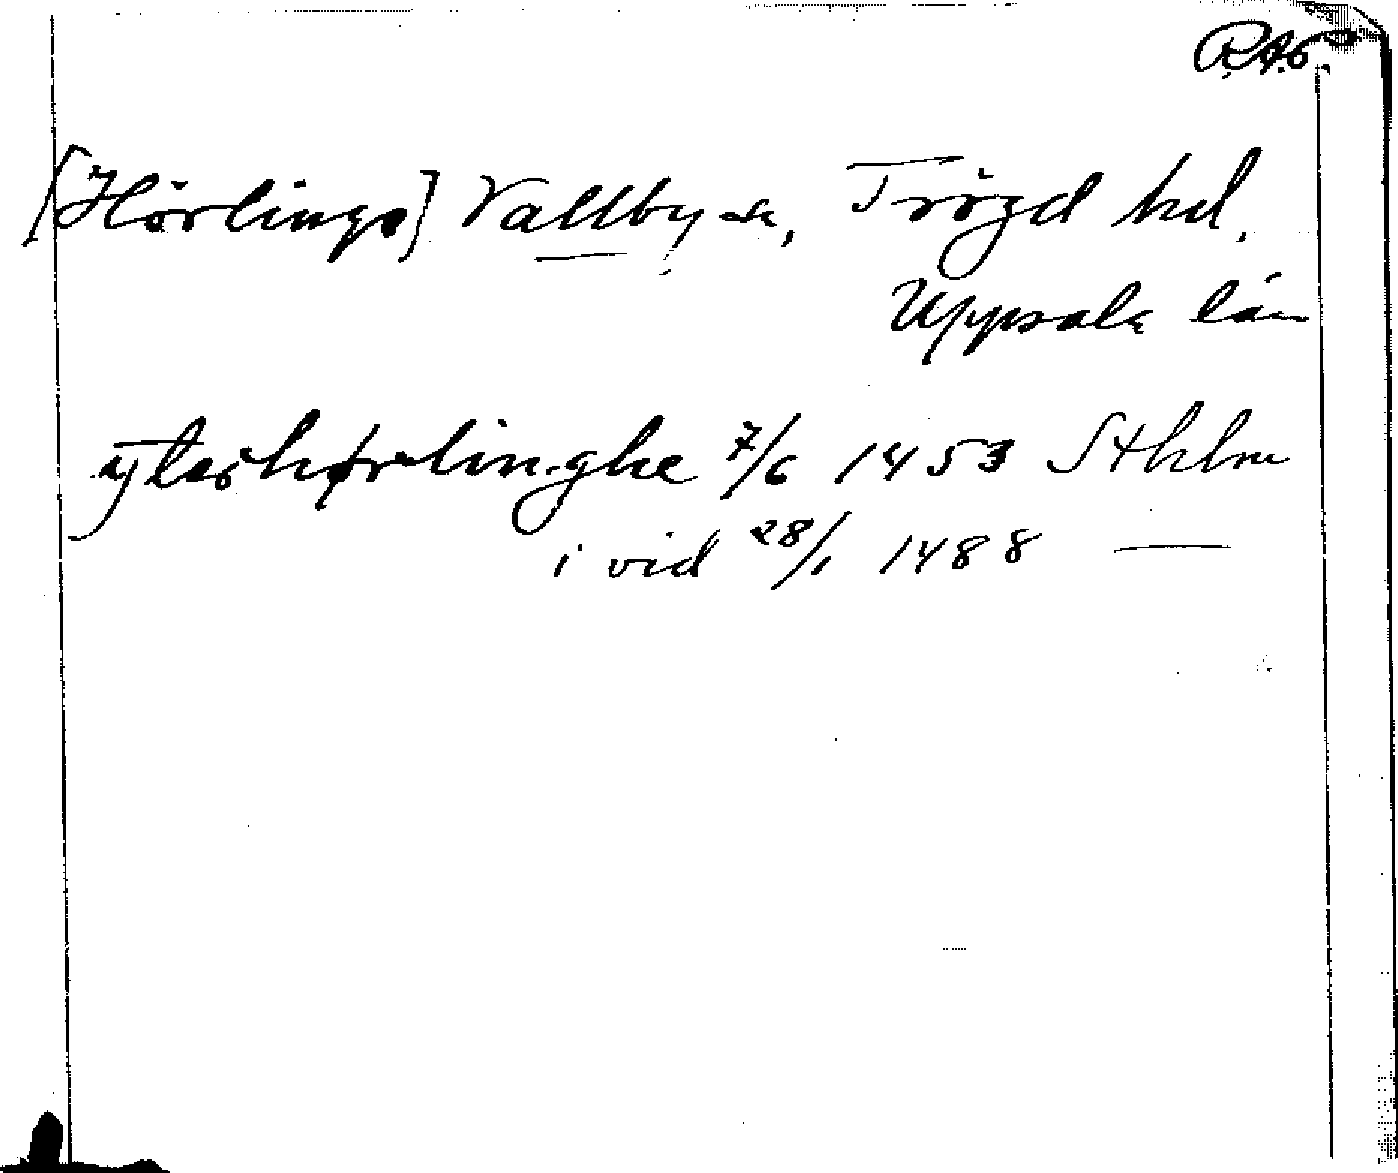 R.A.6.
[Hörlinge] Vallby sn, Trögd hd,
Uppsala län
ytershørlinghe 7/6 1453 Sthlm
i vid 28/1 1488 —